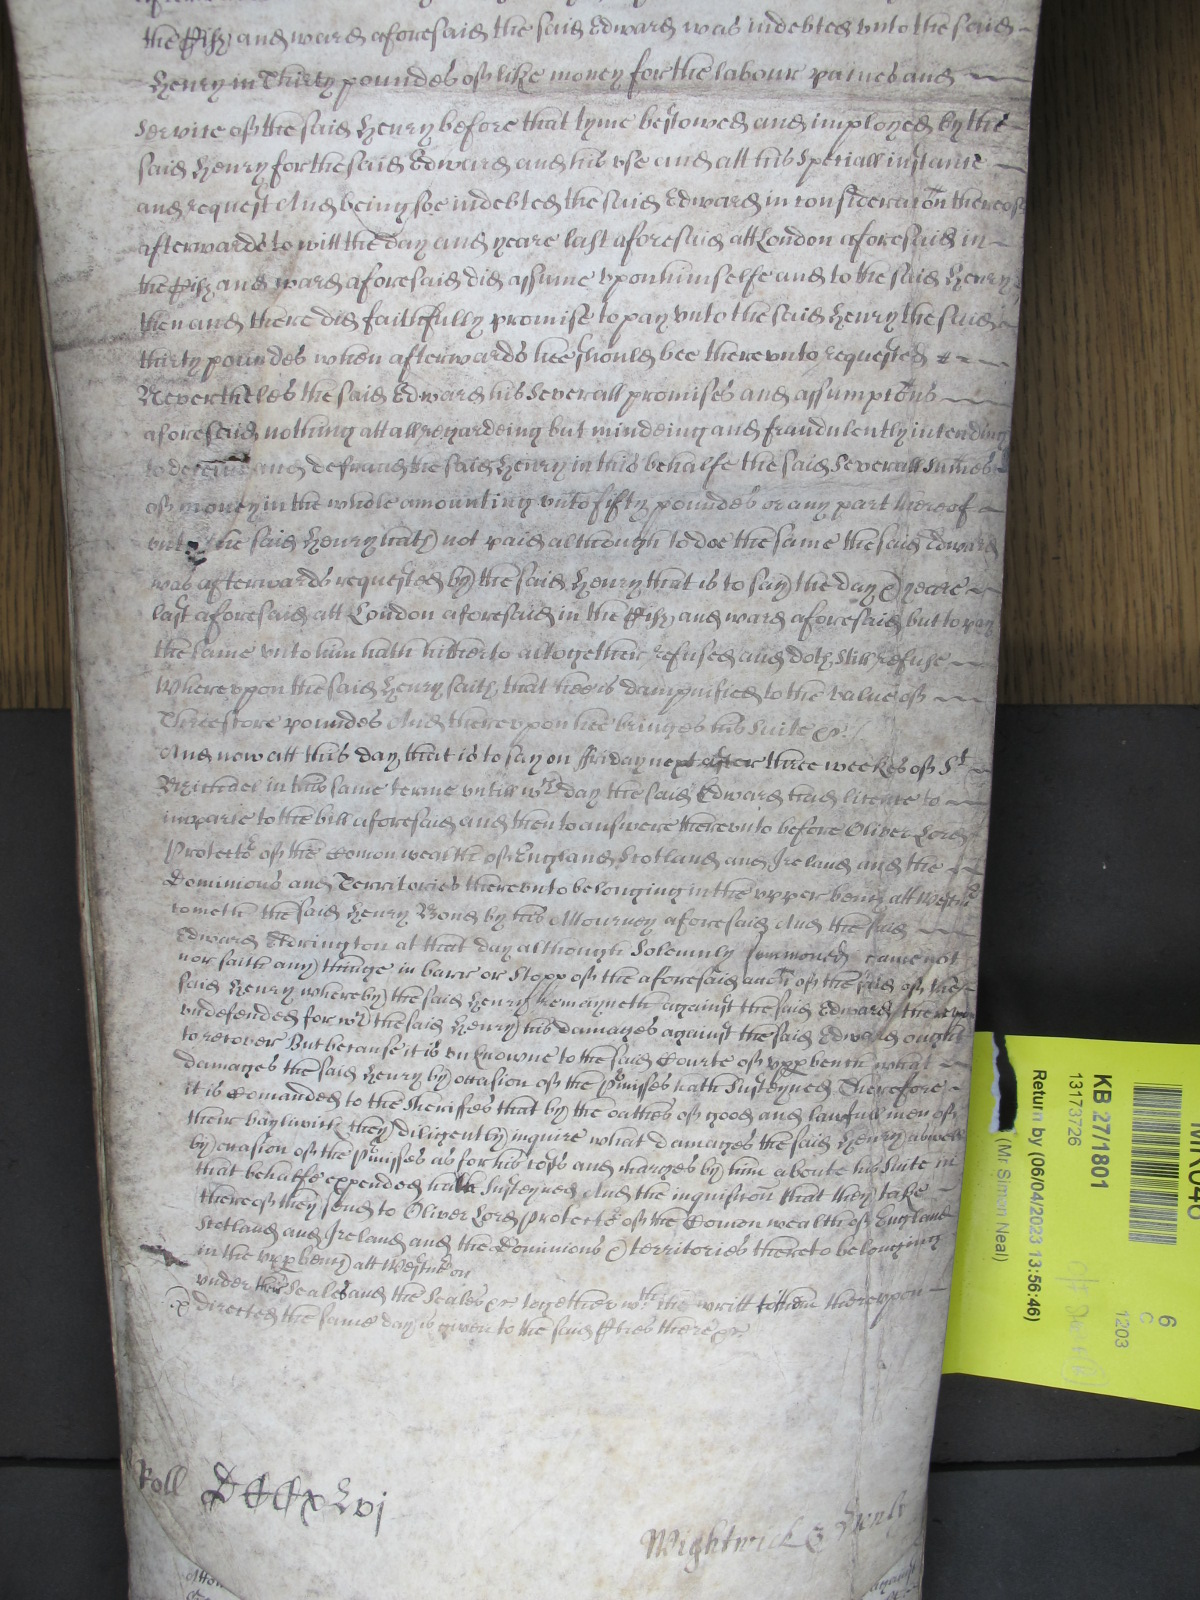 the pish and ward aforesaid the said Edward was indebted unto the said
Henry in Thirty poundes of like money for the labour paines and
Service of the said Henry before that tyme bestowed and imployed by the
said Henry for the said Edward and his use and att his Speciall instance
and request And being soe indebted the said Edward in consideracon thereof
afterwards to witt the day and yeare last aforesaid att London aforesaid in
the pish and ward aforesaid did assume upon himselfe and to the said Henry
then and there did faithfully promise to pay unto the said Henry the said
thirty poundes when afterwards hee should bee thereunto requested
Nevertheles the said Edward his Severall promises and assumptcons
aforesaid nothing att all regardeing but mindeing and fraudulently intending
to deceive and defraud the said Henry in this behalfe the said Severall Sumes
of money in the whole amounting unto fifty poundes or any part thereof
unto the said Henry hath not paid although to doe the same the said Edward
was afterwards requested by the said Henry that is to say the day & yeare
last aforesaid att London aforesaid in the pish and ward aforesaid but to pay
the same unto him hath hitherto altogether refused and doth Still refuse
Whereupon the said Henry saith that hee is dampnified to the value of
Threescore poundes And thereupon hee bringes his Suite &c
And now att this day that is to say on ffriday next after three weekes of St
Michael in this same terme untill wch day the said Edward had licence to
imparle to the bill aforesaid and then to answere thereunto before Oliver Lord
Protector of the Comonwealth of England Scotland and Ireland and the
Dominions and Territories thereunto belonging in the upper bench att Westmr
cometh the said Henry Bond by his Attourney aforesaid And the said
Edward Adrington at that day although Solemnly summoned came not
nor saith any thinge in barr or Stopp of the aforesaid accon of the said of the
said Henry whereby the said Henry remayneth against the said Edward thereupon
undefended for wch the said Henry his damages against the said Edward ought
to recover But because it is unknowne to the said Courte of upp bench what
damages the said Henry by occasion of the pmisses hath Susteyned Therefore
it is Comanded to the Sheriffes that by the oathes of good and lawfull men of
their baylwick they diligently inquire what damages the said Henry aswell
by occasion of the pmisses as for his costs and charges by him aboute his Suite in
that behalfe expended hath Susteyned And the inquisicon that they take
thereof they send to Oliver Lord Protector of the Comonwealth of England
Scotland and Ireland and the Dominions & territories thereto belonging
in the upp bench att Westmr on
under their Seales and the Seales &c together wth the writt to them thereupon
directed the same day is given to the said pties there &c
Roll DCCCxLvj
Wightwick &
KB 27/1801
13173726
Return by (06/04/2023 13:56:46)
(Mr Simon Neal)
6
C
1203